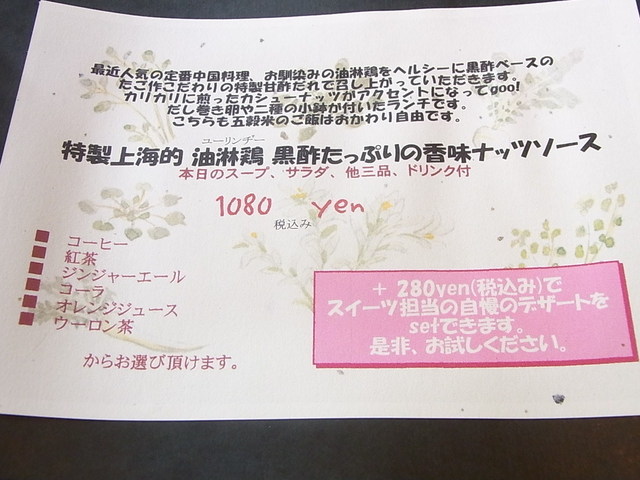 最近人気の定番中国料理、お馴染みの油淋鶏をヘルシーに黒酢ベースの
たご作こだわりの特製甘酢だれで召し上がっていただきます。
カリカリに煎ったカシューナッツがアクセントになってgoo!
だし巻き卵や二種の小鉢が付いたランチです。
こちらも五穀米のご飯はおかわり自由です。
ユーリンヂー
特製上海的 油淋鶏 黒酢たっぷりの香味ナッツソース
本日のスープ、サラダ、他三品、ドリンク付
1080 yen
税込み
■ コーヒー
■ 紅茶
■ ジンジャーエール
■ コーラ
■ オレンジジュース
■ ウーロン茶
からお選び頂けます。
＋ 280yen(税込み)で
スイーツ担当の自慢のデザートを
setできます。
是非、お試しください。